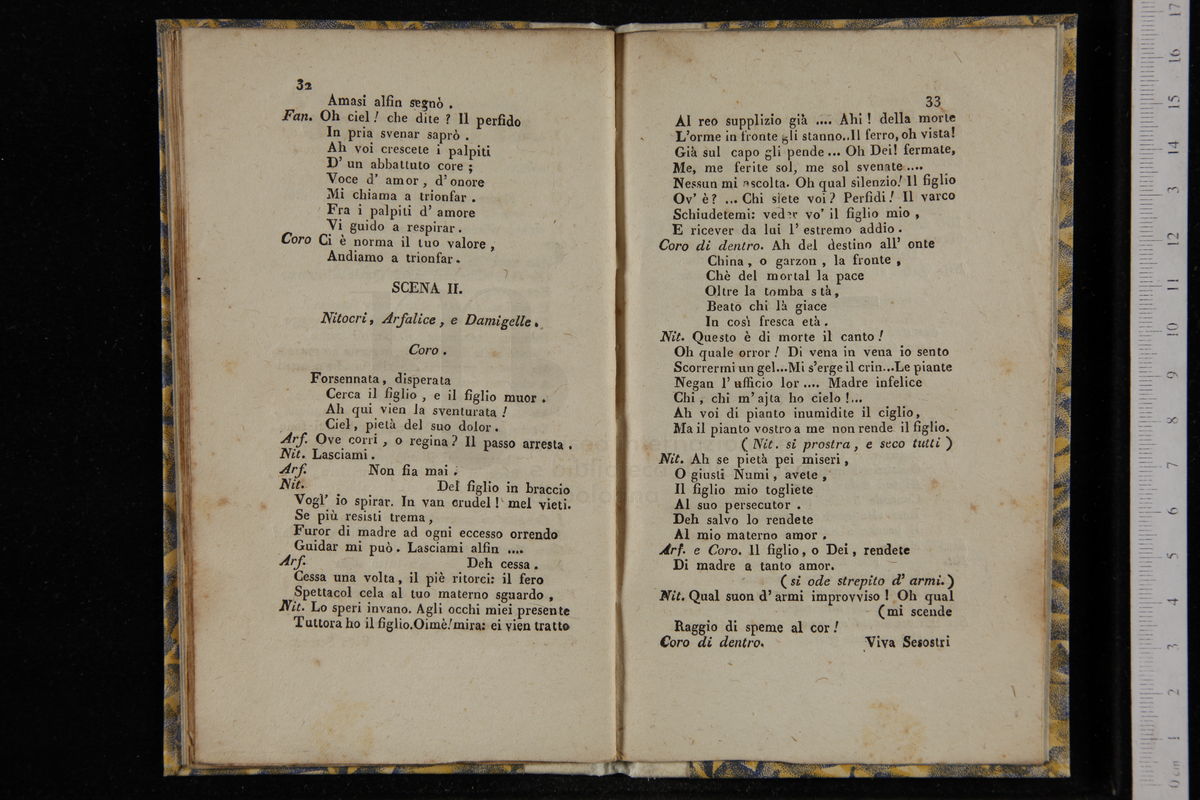 32
Amasi alfin segnò .
Fan. Oh ciel! che dite ? Il perfido
In pria svenar saprò .
Ah voi crescete i palpiti
D' un abbattuto core ;
Voce d' amor , d' onore
Mi chiama a trionfar .
Fra i palpiti d' amore
Vi guido a respirar .
Coro Ci è norma il tuo valore ,
Andiamo a trionfar .
SCENA II.
Nitocri, Arfalice, e Damigelle.
Coro .
Forsennata, disperata
Cerca il figlio , e il figlio muor .
Ah qui vien la sventurata !
Ciel, pietà del suo dolor .
Arf. Ove corri , o regina ? Il passo arresta .
Nit. Lasciami .
Arf. Non fia mai .
Nit. Del figlio in braccio
Vogl' io spirar. In van crudel ! mel vieti.
Se più resisti trema ,
Furor di madre ad ogni eccesso orrendo
Guidar mi può . Lasciami alfin ....
Arf. Deh cessa .
Cessa una volta, il piè ritorci: il fero
Spettacol cela al tuo materno sguardo ,
Nit. Lo speri invano. Agli occhi miei presente
Tuttora ho il figlio. Oimè! mira: ei vien tratto
33
Al reo supplizio già .... Ahi ! della morte
L'orme in fronte gli stanno..Il ferro, oh vista!
Già sul capo gli pende ... Oh Dei! fermate,
Me, me ferite sol, me sol svenate ....
Nessun mi ascolta. Oh qual silenzio! Il figlio
Ov' è ? ... Chi siete voi ? Perfidi ! Il varco
Schiudetemi: veder vo' il figlio mio ,
E ricever da lui l' estremo addio .
Coro di dentro. Ah del destino all' onte
China , o garzon , la fronte ,
Chè del mortal la pace
Oltre la tomba stà,
Beato chi là giace
In così fresca età .
Nit. Questo è di morte il canto !
Oh quale orror ! Di vena in vena io sento
Scorrermi un gel...Mi s'erge il crin...Le piante
Negan l' ufficio lor .... Madre infelice
Chi , chi m' ajta ho cielo !...
Ah voi di pianto inumidite il ciglio,
Ma il pianto vostro a me non rende il figlio.
( Nit. si prostra , e seco tutti )
Nit. Ah se pietà pei miseri ,
O giusti Numi , avete ,
Il figlio mio togliete
Al suo persecutor .
Deh salvo lo rendete
Al mio materno amor .
Arf. e Coro. Il figlio, o Dei, rendete
Di madre a tanto amor.
( si ode strepito d' armi. )
Nit. Qual suon d' armi improvviso ! Oh qual
(mi scende
Raggio di speme al cor !
Coro di dentro. Viva Sesostri